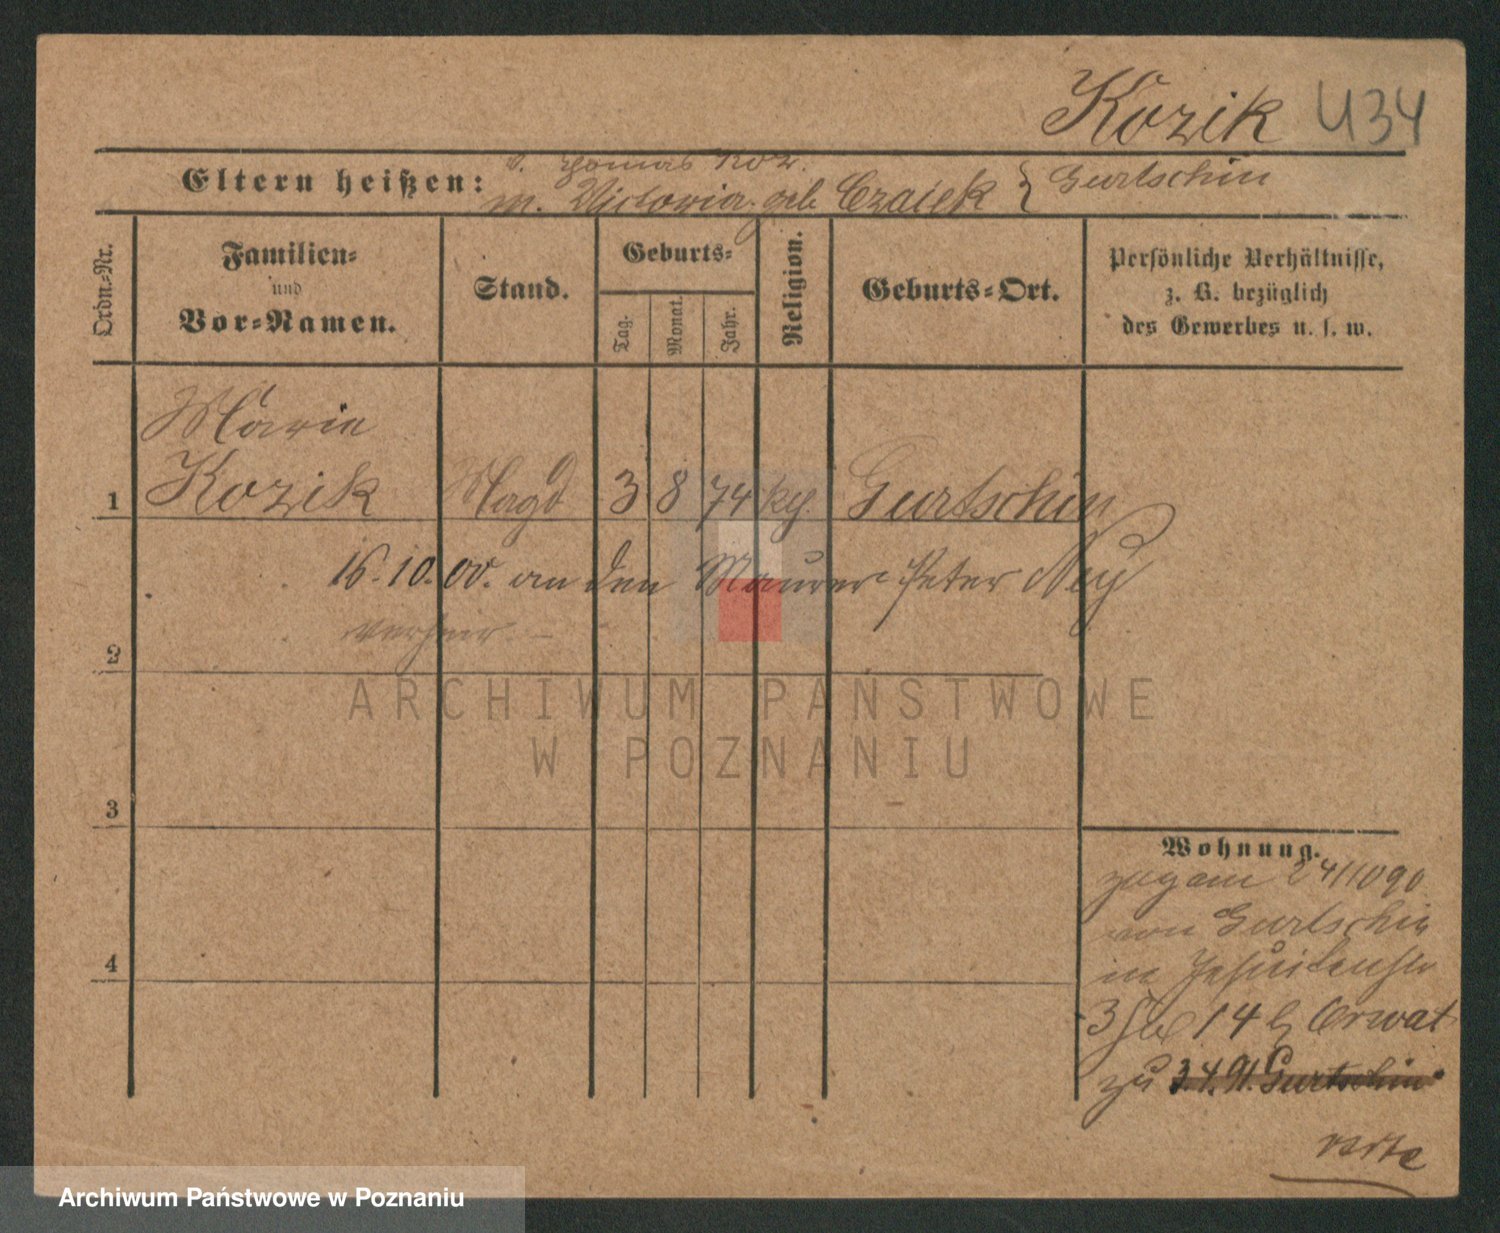 Kozik 434
Eltern heißen: v. Thomas Koz.
m. Victoria geb Czaiek } Gurtschin
Ordn.-Nr.
Familien-
und
Vor-Namen.
Stand.
Geburts-
Tag.
Monat.
Jahr.
Religion.
Geburts-Ort.
Persönliche Verhältnisse,
z. B. bezüglich
des Gewerbes u. s. w.
Marie
1 Kozik Magd 3 8 74 kg. Gurtschin
16.10.00. an den Maurer Peter Ney
2
ARCHIWUM PAŃSTWOWE
W POZNANIU
3
4
Wohnung.
24/10 90
von Gurtschin
in Jesuitenstr
3 14 b Crwat
zu 3.4.91. Gurtschin
verte
Archiwum Państwowe w Poznaniu